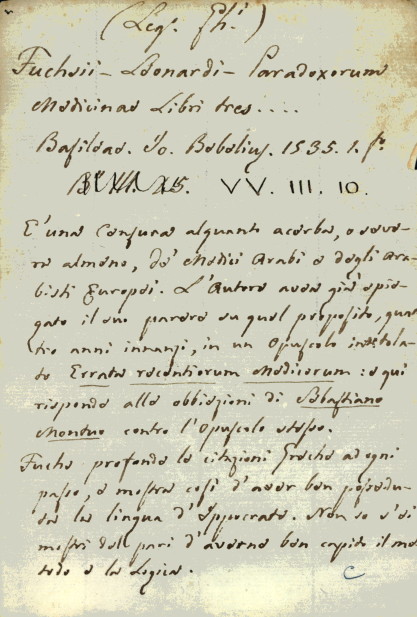 (Leg. Phi.)
Fuchsii - Leonardi - Paradoxorum
Medicinae Libri tres....
Basileae. Io. Bebelius. 1535. 1. f.
VV. III. 10.
E' una Censura alquanto acerba, o seve-
ra almeno, de' Medici Arabi e degli Ara-
bisti Europei. L'Autore avea già spie-
gato il suo parere su quel proposito, quat-
tro anni innanzi, in un Opuscolo intitola-
to Errata recentiorum Medicorum: e qui
risponde alle obbiezioni di Sebastiano
Montuo contro l'Opuscolo stesso.
Fuchs profonde le citazioni Greche ad ogni
passo, e mostra così d'aver ben possedu-
ta la lingua d'Ippocrate. Non so s'ei
mostri del pari d'averne ben capito il me-
todo e la Logica.
C